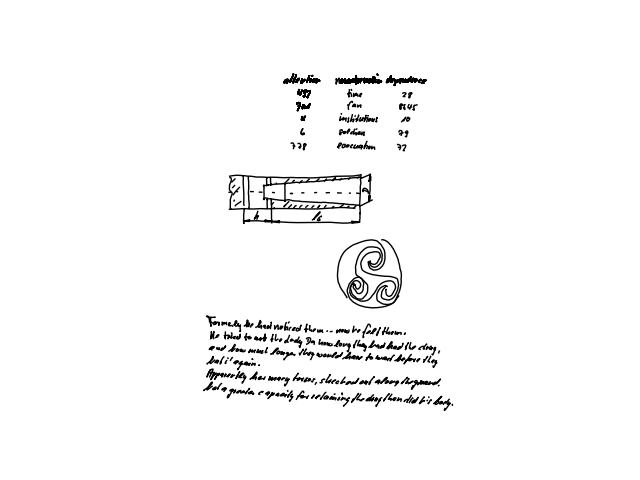 attention reconstruction dependence
497 time 28
fan 8245
8 institutions 10
6 soldiers 79
778 evacuation 72
h l6
Formerly he had noticed them... now he felt them.
He tried to ask the lady Da how long they had had the drug,
and how much longer they would have to wait before they
had it again.
Apparently has many torsos, stretched out along the ground.
Had a greater capacity for retaining the drug than did his body.